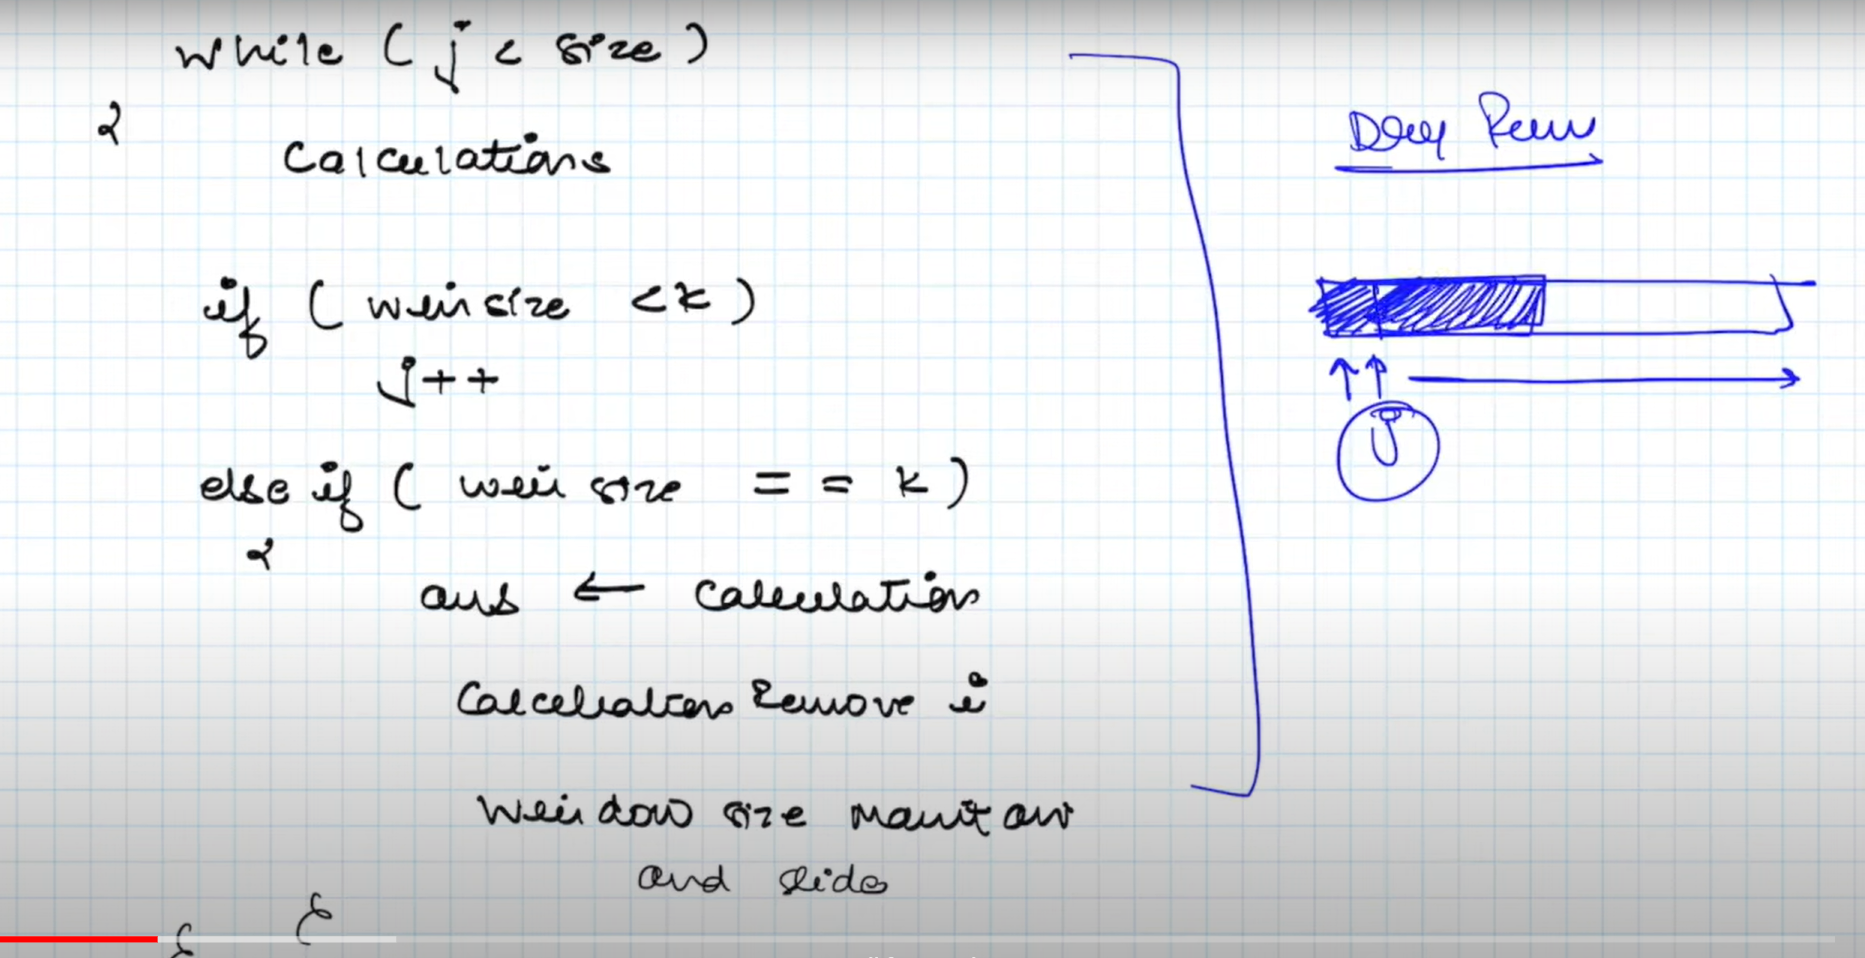 while ( j < size )
{
Calculations
if ( winsize < k )
j++
else if ( win size = = k )
{
ans ← calculation
Calculation Remove i
Window size maintain
and slide
}
}
Dry Run
j